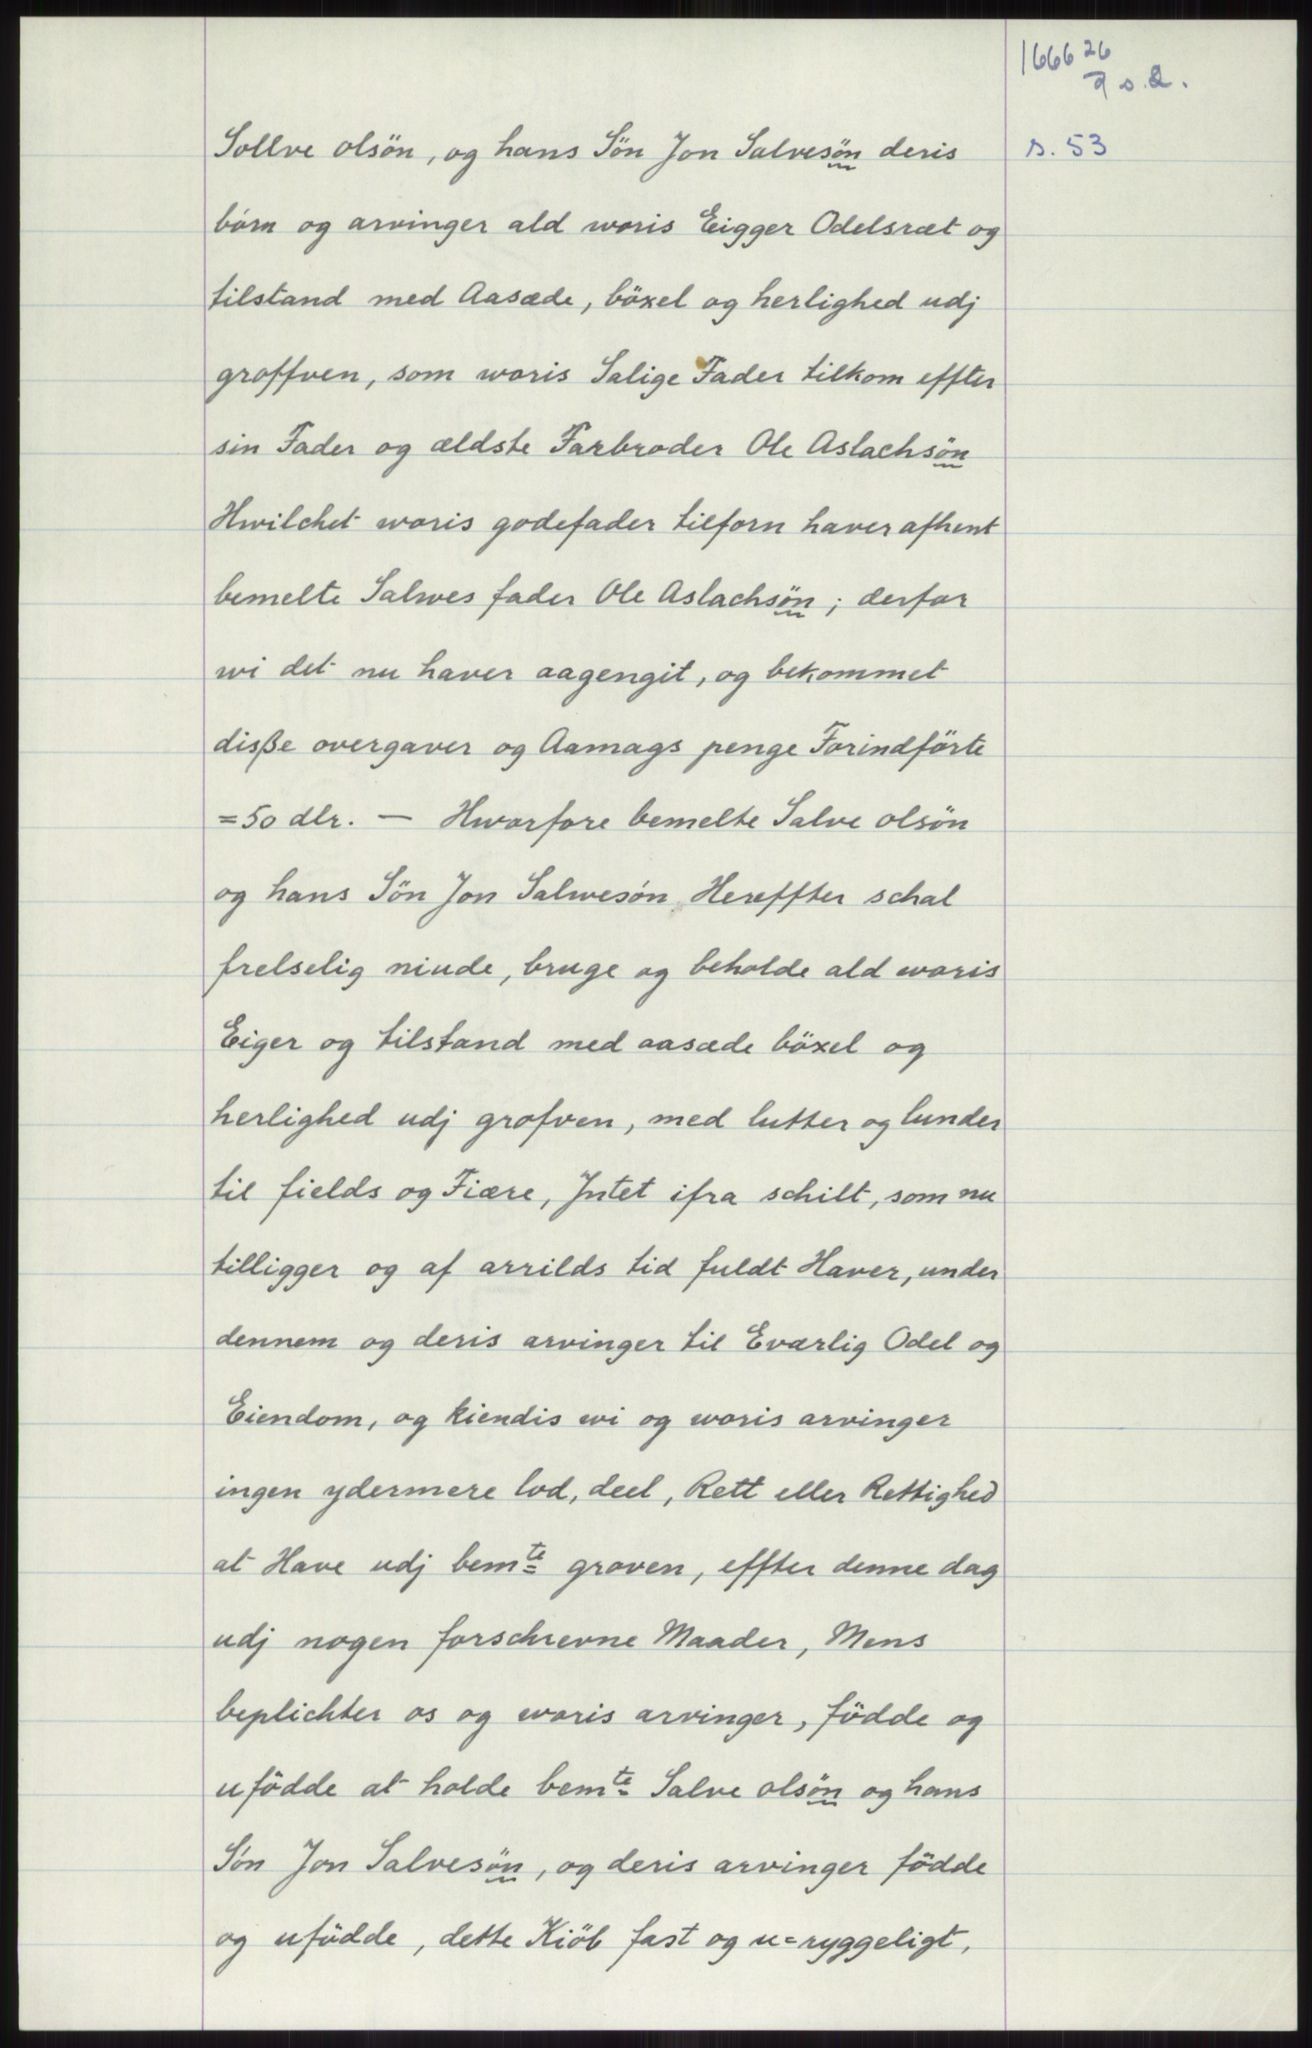 166626
7 s. 2.
s. 53
Sollve olsön, og hans Sön Jon Salvesön deris
börn og arvinger ald woris Eigger Odelsræt og
tilstand med Aasæde, böxel og herlighed udj
groffven, som woris Salige Fader tilkom effter
sin Fader og ældste Farbroder Ole Aslachsön
Hwilchet woris godefader tilforn haver afhent
bemelte Salwes fader Ole Aslachsön; derfor
wi det nu haver aagengit, og bekommet
disße overgaver og Aamags penge Forindförte
=50 dlr. — Hworfore bemelte Salve olsön
og hans Sön Jon Salwesön Hereffter schal
frelselig niude, bruge og beholde ald woris
Eiger og tilstand med aasæde böxel og
herlighed udj grofven, med lutter og lunder
til fields og Fiære, Intet ifra schilt, som nu
tilligger og af arrilds tid fuldt Haver, under
dennem og deris arvinger til Eværlig Odel og
Eiendom, og kiendis wi og woris arvinger
ingen ydermere lod, deel, Rett eller Rettighed
at Have udj bemte groven, effter denne dag
udj nogen forschrevne Maader, Mens
beplichter os og woris arvinger, födde og
ufödde at holde bemte Salve olsön og hans
Sön Jon Salvesön, og deris arvinger födde
og ufödde, dette Kiöb fast og u=ryggeligt,